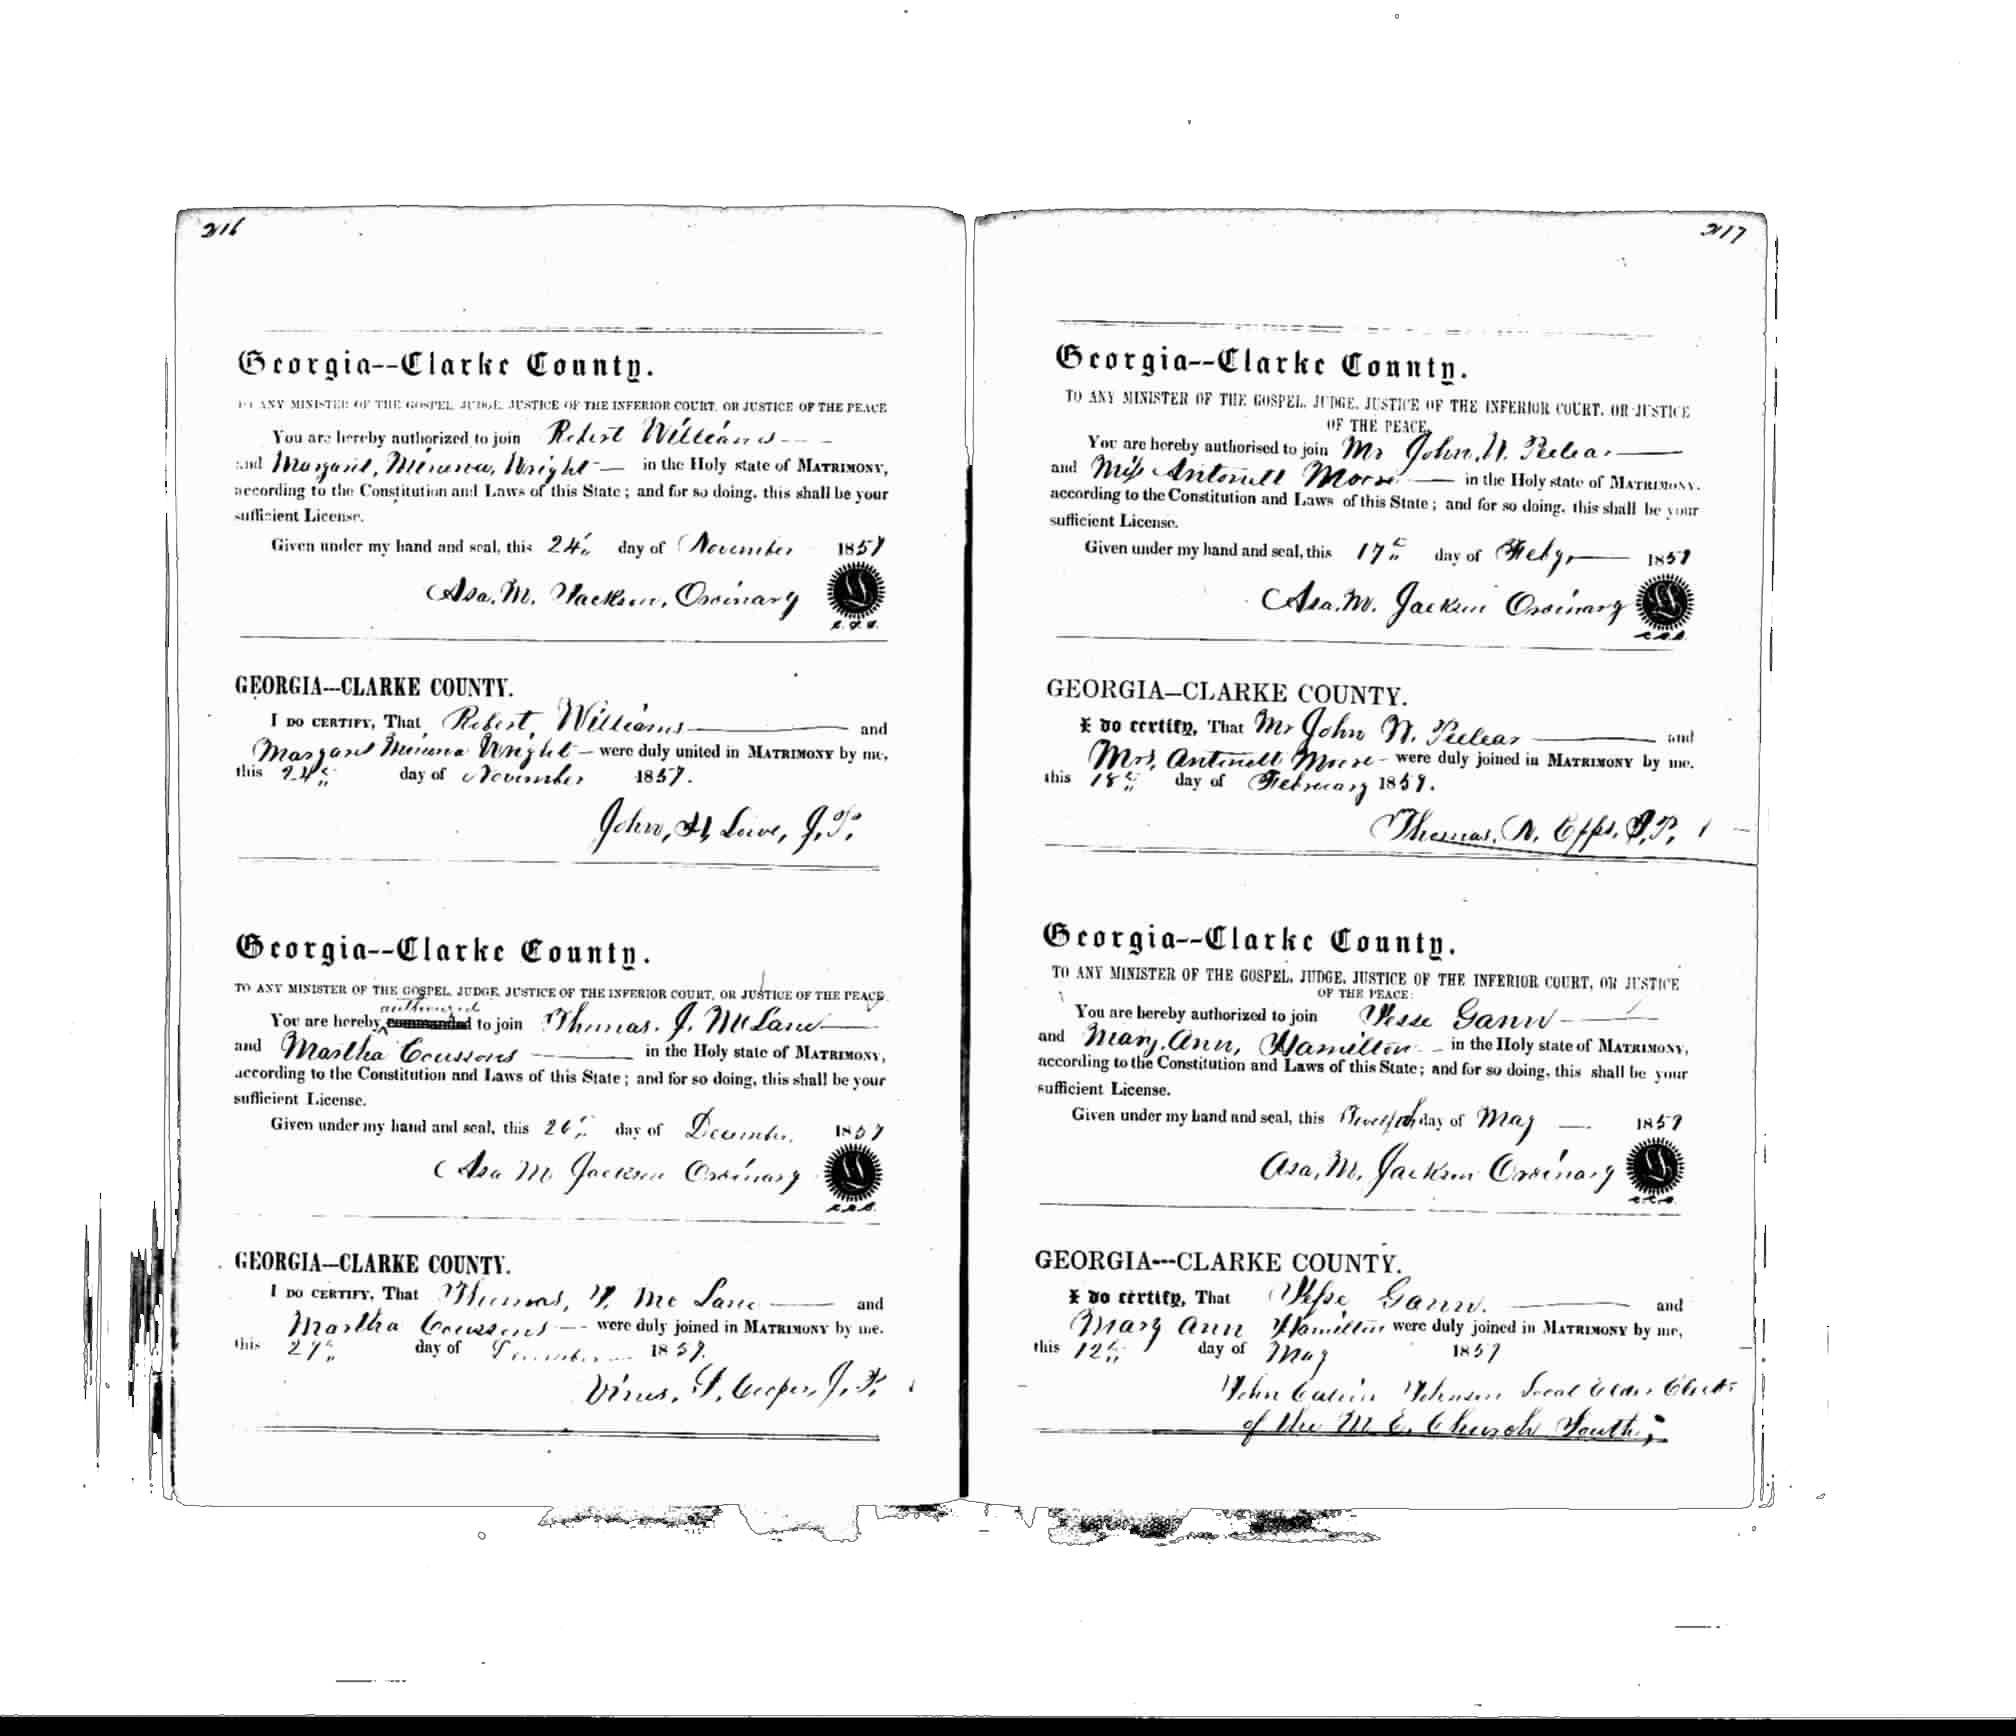 216
Georgia--Clarke County.
TO ANY MINISTER OF THE GOSPEL, JUDGE, JUSTICE OF THE INFERIOR COURT, OR JUSTICE OF THE PEACE
You are hereby authorized to join Robert Williams
and Margaret, Minerva, Wright in the Holy state of MATRIMONY,
according to the Constitution and Laws of this State; and for so doing, this shall be your
sufficient License.
Given under my hand and seal, this 24th day of November 1859
Asa. M. Jackson, Ordinary
GEORGIA--CLARKE COUNTY.
I DO CERTIFY, That Robert, Williams and
Margaret Minerva Wright were duly united in MATRIMONY by me,
this 24th day of November 1859.
John, H, Lowe, J.P.
Georgia--Clarke County.
TO ANY MINISTER OF THE GOSPEL, JUDGE, JUSTICE OF THE INFERIOR COURT, OR JUSTICE OF THE PEACE
authorized
You are hereby commanded to join Thomas. J. McLane
and Martha Coussons in the Holy state of MATRIMONY,
according to the Constitution and Laws of this State; and for so doing, this shall be your
sufficient License.
Given under my hand and seal, this 26th day of December. 1859
Asa M. Jackson Ordinary
GEORGIA--CLARKE COUNTY.
I DO CERTIFY, That Thomas, J. McLane and
Martha Coussons were duly joined in MATRIMONY by me.
this 27th day of December 1859.
J. P.
217
Georgia--Clarke County.
TO ANY MINISTER OF THE GOSPEL, JUDGE, JUSTICE OF THE INFERIOR COURT, OR JUSTICE
OF THE PEACE,
You are hereby authorised to join Mr John. N. Peelear
and Miss Antonett Moore in the Holy state of MATRIMONY,
according to the Constitution and Laws of this State; and for so doing, this shall be your
sufficient License.
Given under my hand and seal, this 17th day of Feby, 1859
Asa. M. Jackson Ordinary
GEORGIA--CLARKE COUNTY.
I do certify, That Mr John N. Peelear and
Mrs, Antonett Moore were duly joined in MATRIMONY by me.
this 18th day of February 1859.
Thomas. N. Epps. J.P.
Georgia--Clarke County.
TO ANY MINISTER OF THE GOSPEL, JUDGE, JUSTICE OF THE INFERIOR COURT, OR JUSTICE
OF THE PEACE:
You are hereby authorized to join Jesse Gann
and Mary, Ann, Hamilton in the Holy state of MATRIMONY,
according to the Constitution and Laws of this State; and for so doing, this shall be your
sufficient License.
Given under my hand and seal, this Twelfth day of May 1859
Asa, M, Jackson Ordinary
GEORGIA---CLARKE COUNTY.
I do certify, That Jesse Gann. and
Mary Ann Hamilton were duly joined in MATRIMONY by me,
this 12th day of May 1859
John Calvin Johnson Local Elder
of the M. E. Church South;